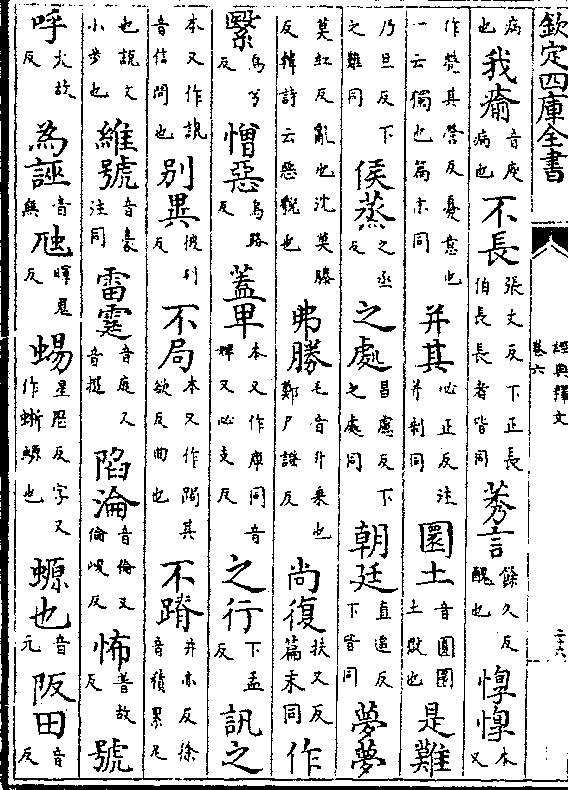 欽定四庫全書 經典釋文 卷六 二十六
病也 我瘉音庾病也 不長張丈反下正長伯長長者皆同 莠言餘久反醜也 惸惸本又
作煢其營反憂意也一云獨也篇末同 并其必正反注并制同 圜土音圓圜土獄也 是難
乃旦反下之難同 侯蒸之丞反 之處昌慮反下之處同 朝廷直遥反下皆同 夢夢
莫紅反亂也沈莫滕反韓詩云惡貌也 弗勝毛音升乗也鄭尸證反 尚復扶又反篇末同 作
繄烏兮反 憎惡烏路反 蓋卑本又作庳同音婢又必支反 之行下孟反 訊之
本又作訊音信問也 别異彼列反 不局本又作跼其欲反曲也 不蹐井亦反徐音積累足
也說文小步也 維號音豪注同 雷霆音庭又音挺 陷淪音倫又倫峻反 怖普故反 號
呼火故反 為誣音無 虺暉鬼反 蜴星歴反字又作蜥螈也 螈也音元 阪田音反